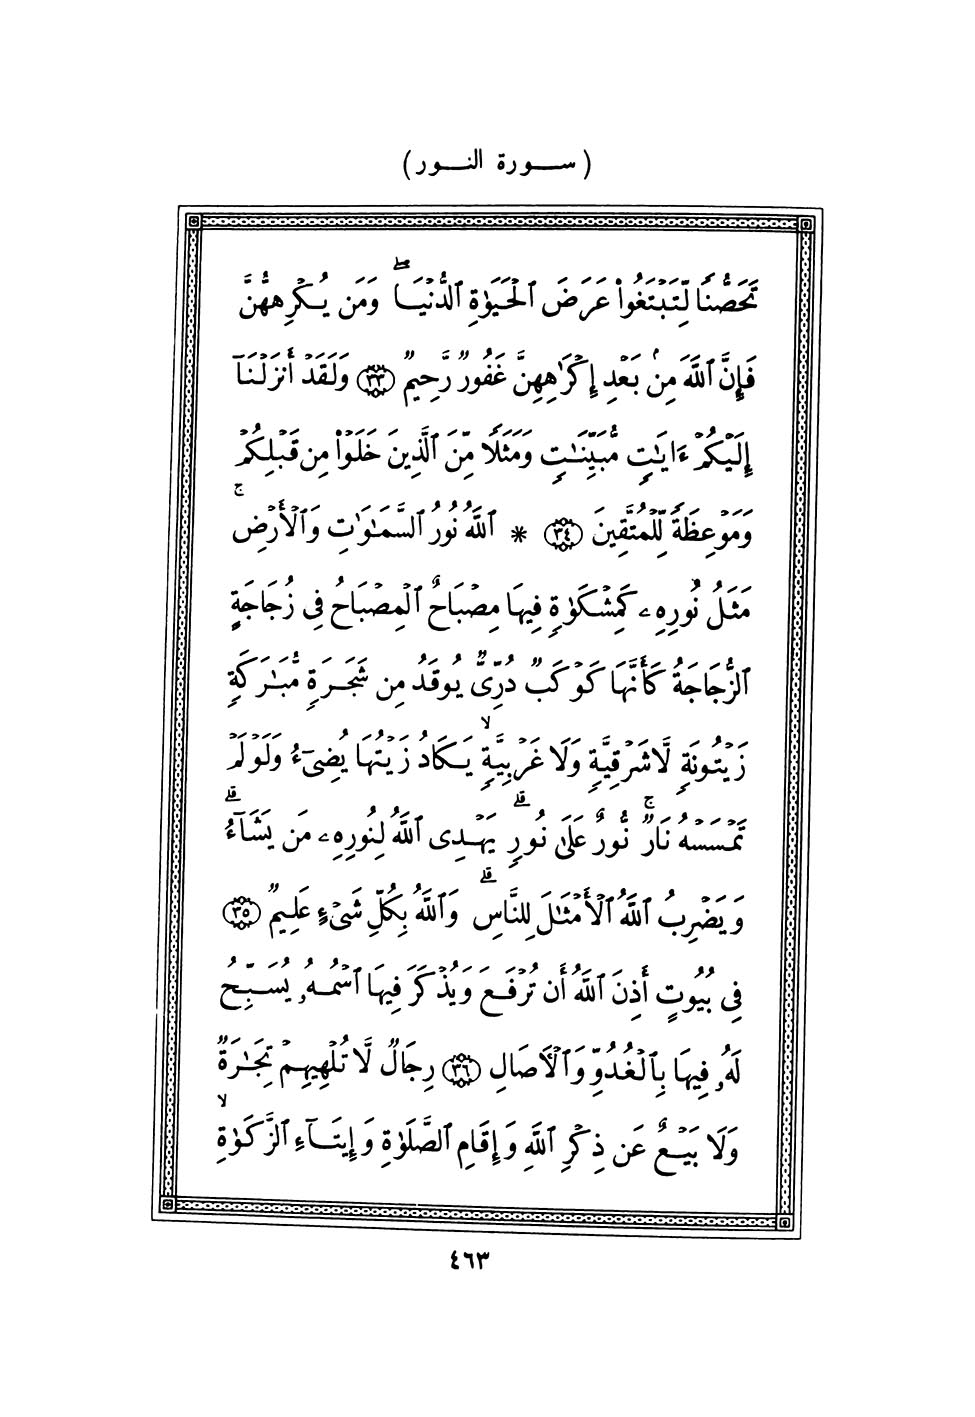 ( ســورة النــور )
تَحَصُّنًا لِّتَبْتَغُوا۟ عَرَضَ ٱلْحَيَوٰةِ ٱلدُّنْيَا ۖ وَمَن يُكْرِههُّنَّ
فَإِنَّ ٱللَّهَ مِنۢ بَعْدِ إِكْرَٰهِهِنَّ غَفُورٌ رَّحِيمٌ ٣٣ وَلَقَدْ أَنزَلْنَآ
إِلَيْكُمْ ءَايَٰتٍ مُّبَيِّنَٰتٍ وَمَثَلًا مِّنَ ٱلَّذِينَ خَلَوْا۟ مِن قَبْلِكُمْ
وَمَوْعِظَةً لِّلْمُتَّقِينَ ٣٤ * ٱللَّهُ نُورُ ٱلسَّمَٰوَٰتِ وَٱلْأَرْضِ ۚ
مَثَلُ نُورِهِۦ كَمِشْكَوٰةٍ فِيهَا مِصْبَاحٌ ٱلْمِصْبَاحُ فِى زُجَاجَةٍ
ٱلزُّجَاجَةُ كَأَنَّهَا كَوْكَبٌ دُرِّىٌّ يُوقَدُ مِن شَجَرَةٍ مُّبَٰرَكَةٍ
زَيْتُونَةٍ لَّا شَرْقِيَّةٍ وَلَا غَرْبِيَّةٍ ۙ يَكَادُ زَيْتُهَا يُضِىٓءُ وَلَوْ لَمْ
تَمْسَسْهُ نَارٌ ۚ نُّورٌ عَلَىٰ نُورٍ ۗ يَهْدِى ٱللَّهُ لِنُورِهِۦ مَن يَشَآءُ ۗ
وَيَضْرِبُ ٱللَّهُ ٱلْأَمْثَٰلَ لِلنَّاسِ ۗ وَٱللَّهُ بِكُلِّ شَىْءٍ عَلِيمٌ ٣٥
فِى بُيُوتٍ أَذِنَ ٱللَّهُ أَن تُرْفَعَ وَيُذْكَرَ فِيهَا ٱسْمُهُۥ يُسَبِّحُ
لَهُۥ فِيهَا بِٱلْغُدُوِّ وَٱلْءَاصَالِ ٣٦ رِجَالٌ لَّا تُلْهِيهِمْ تِجَٰرَةٌ
وَلَا بَيْعٌ عَن ذِكْرِ ٱللَّهِ وَإِقَامِ ٱلصَّلَوٰةِ وَإِيتَآءِ ٱلزَّكَوٰةِ ۙ
٤٦٣